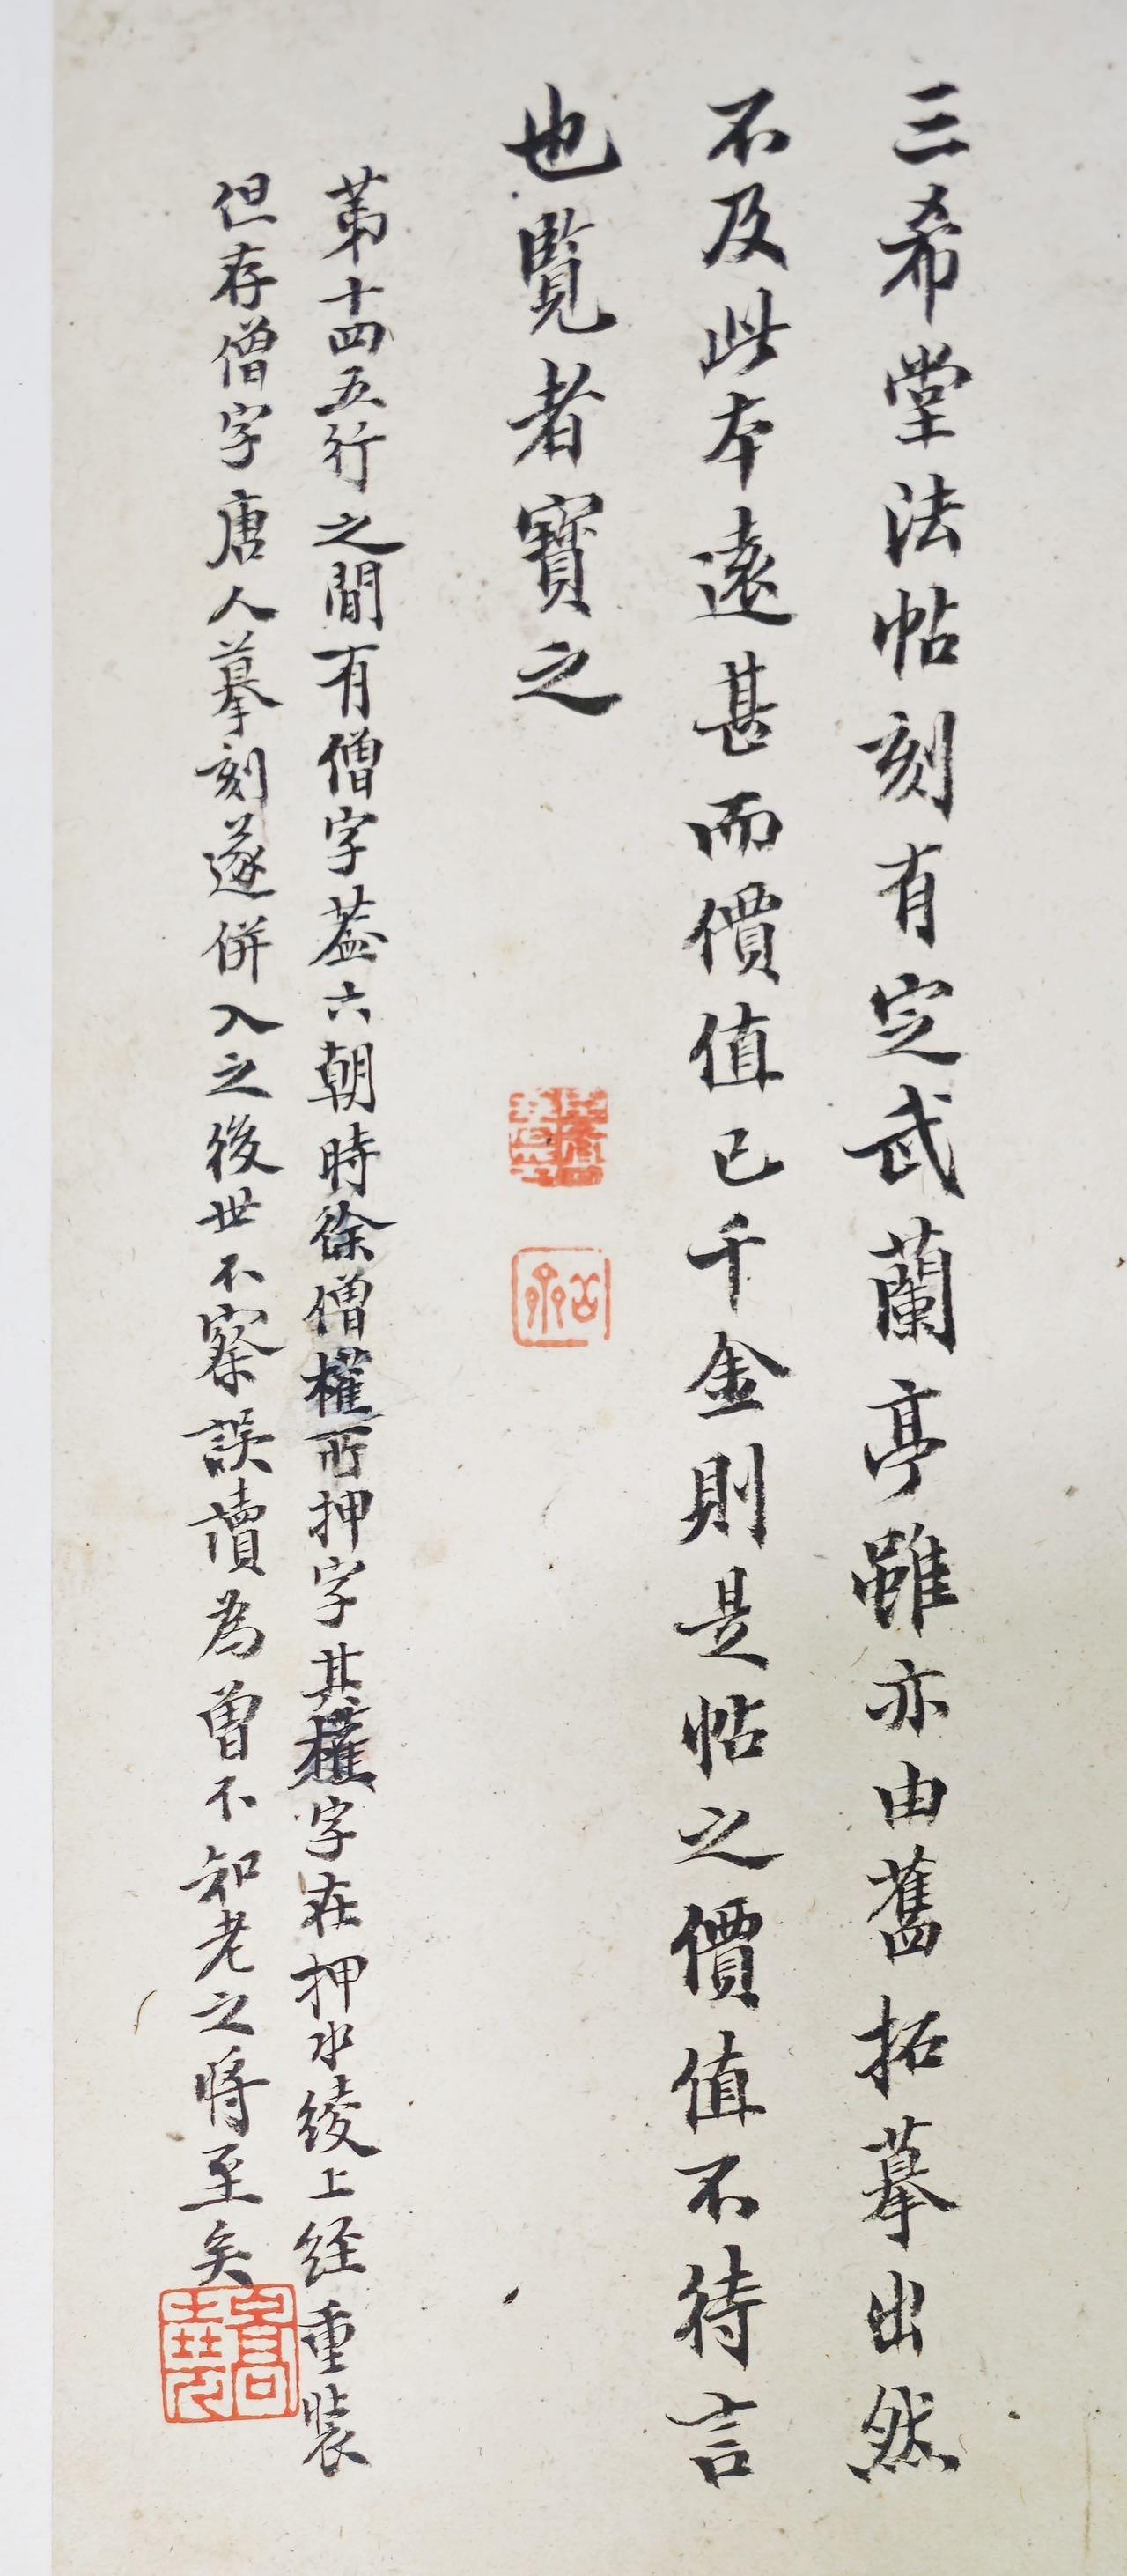 三希堂法帖刻有定武蘭亭雖亦由舊拓摹出然
不及此本遠甚而價值已千金則是帖之價值不待言
也覽者寶之
苐十四五行之間有僧字葢六朝時徐僧權所押字其權字在押水綾上經重裝
但存僧字唐人摹刻遂併入之後世不察誤讀為曾不知老之將至矣